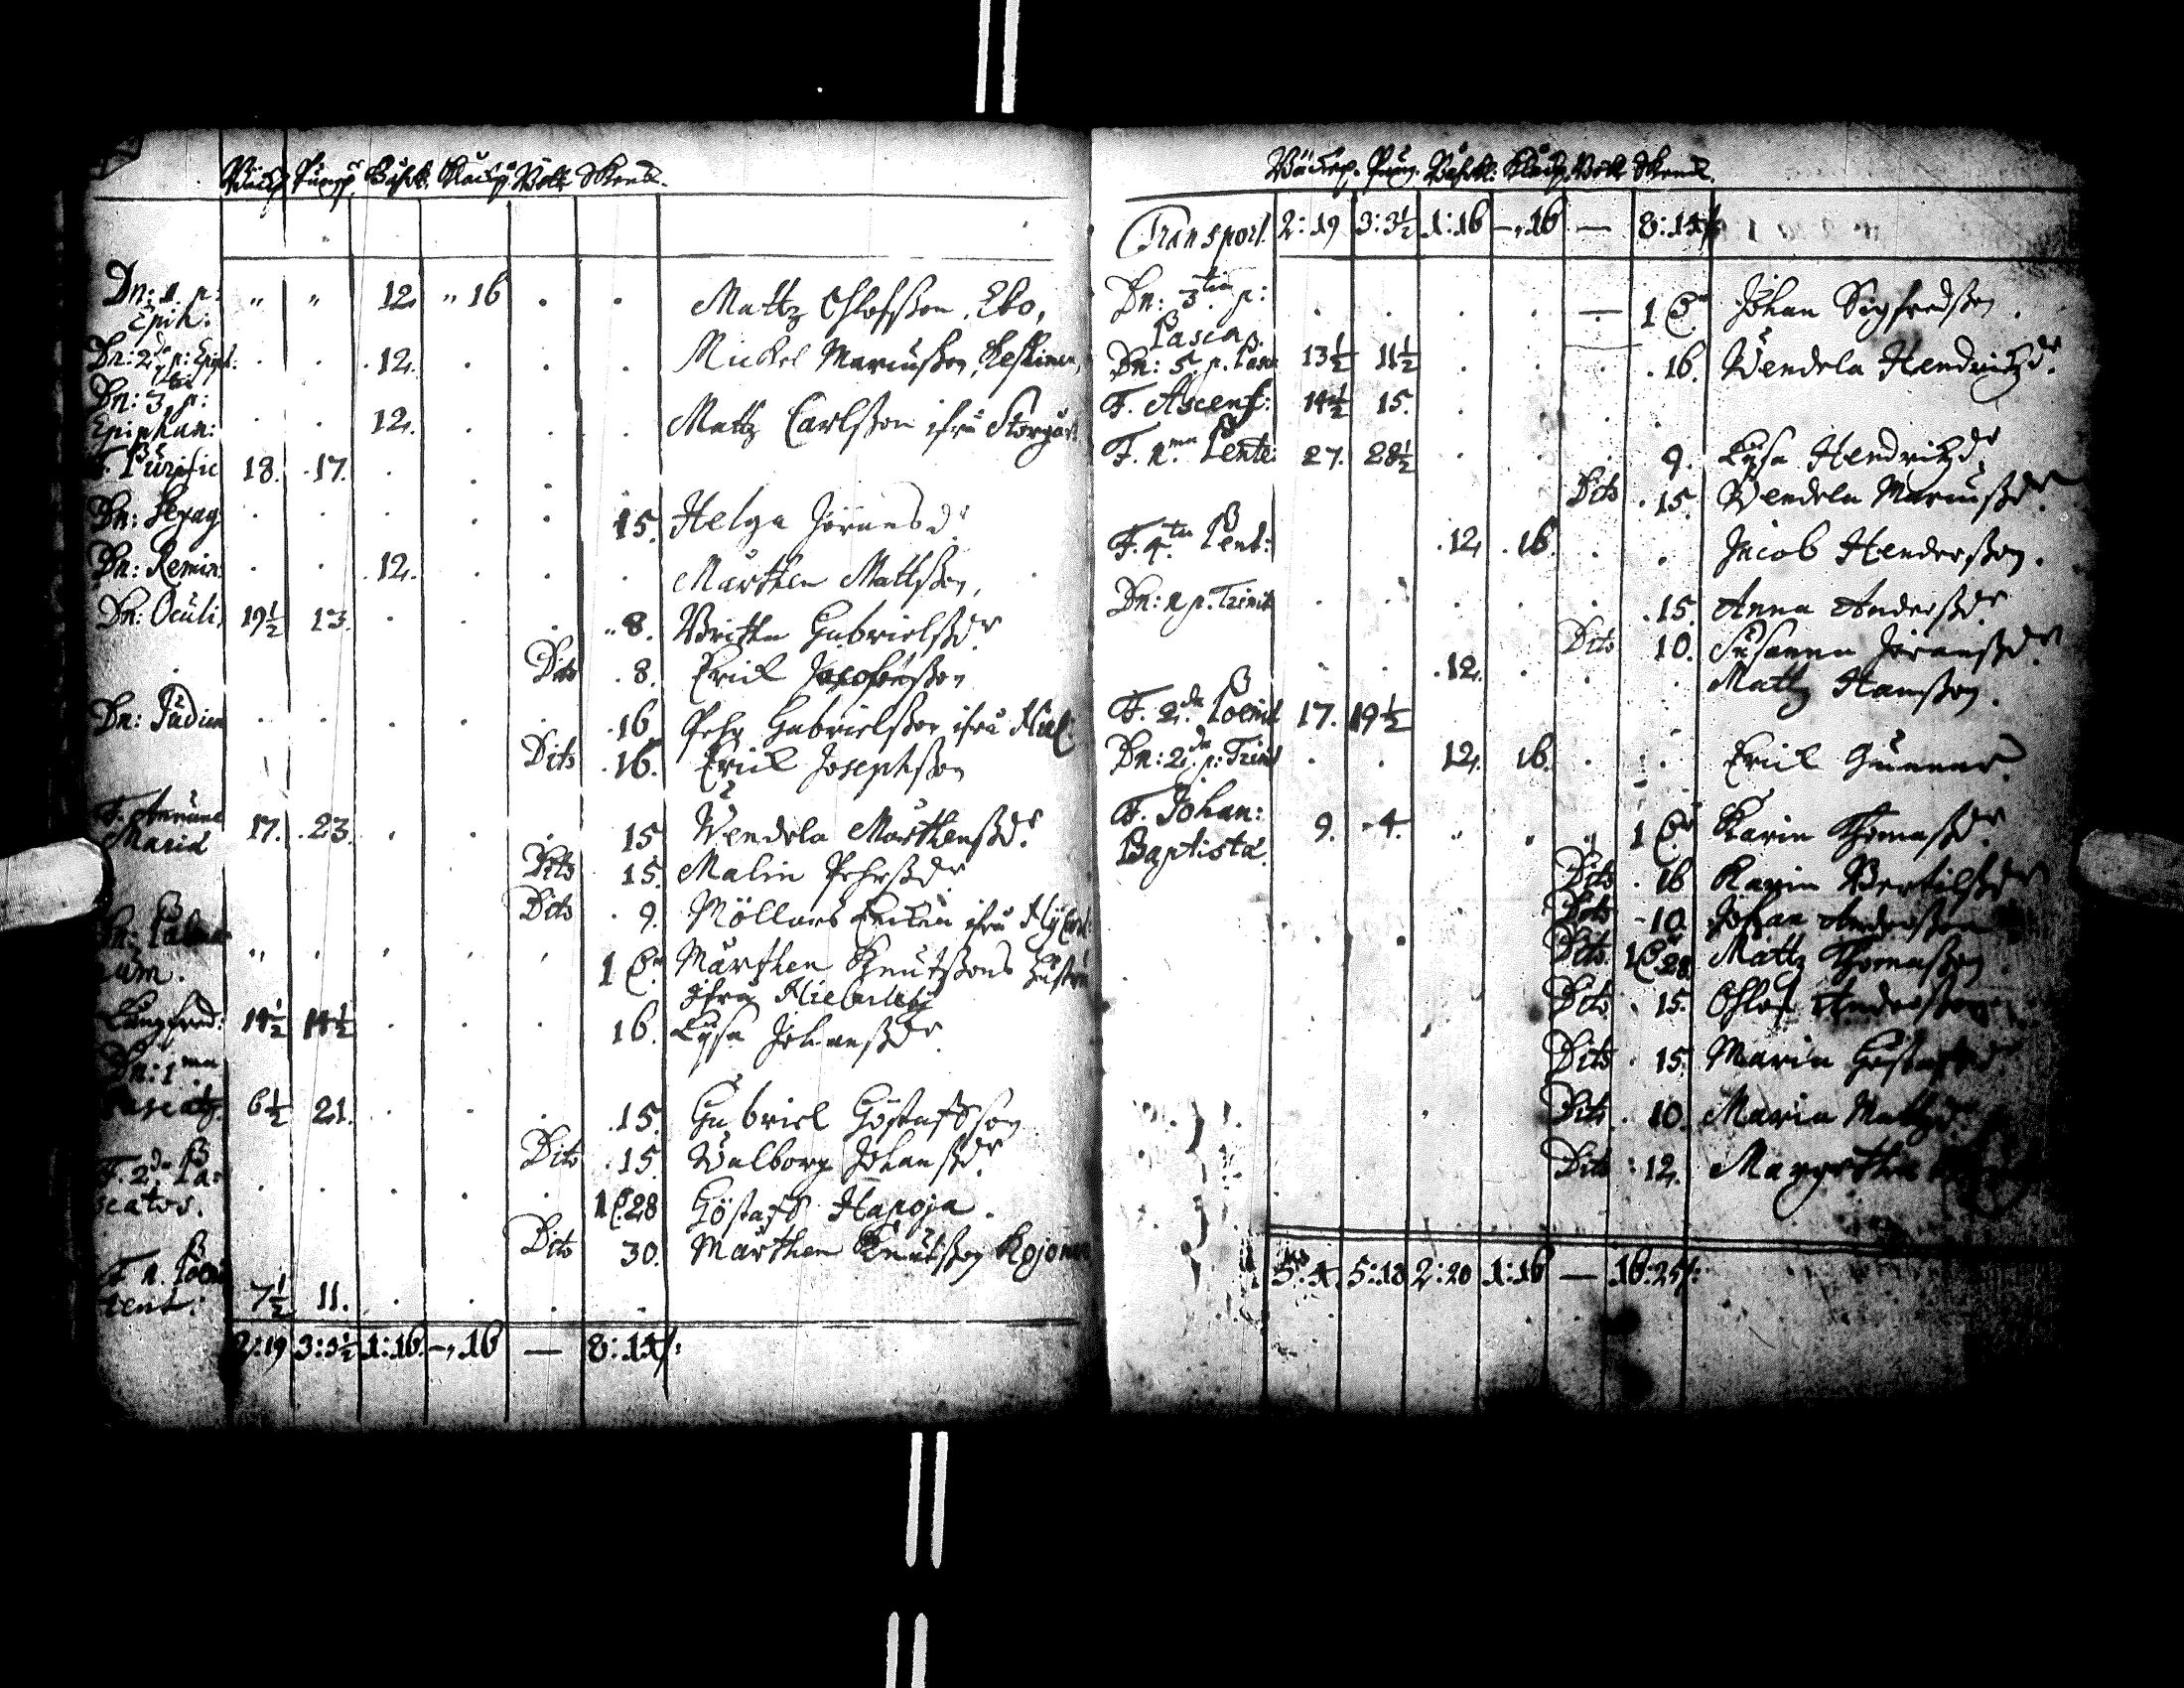 Dn: 1. p: Epih: " " 12. " 16 . . Mattz Ohlofsson, Ebo,
Dn: 2da p: Epiph: . . 12. Mickel Mariusson,
Dn: 3tia p: Epiphan: . . 12. . . . Mattz Carlsson ifrå Storgår
F. Purific 18. 17. . . . .
Dn: Sexag . . . . . 15. Helga Jöransdr
Dn: Remin: . . 12. . . . Mårthen Mattsson,
Dn: Oculi, 19½ 13. . . . 8. Britha Gabrielssdr
Dito . 8. Erick
Dn: Judica . . . . . 16. Pehr Gabrielsson ifrå
Dito . 16. Erick Josephsson
F. Annunc Mariæ 17. 23. . . . 15 Vendela Mårthenssdr
Dito 15. Malin Pehrssdr
Dito . 9. Möllars ifrå
Dn: Palmarum. " . . . . 1 Mårthen Knutssons Hustru
ifrå
Långfred: 14½ 14½ . . . 16. Lysa Johanssdr
Dn: 1ma Pascatz. 6½ 21. . . . 15. Gabriel Göstafsson
Dito . 15 Valborg Johanssdr
F. 2da Pascatos. . . . . . 1 28 Göstaff Hapoja.
Dito 30. Mårthen Knutsson
F. 1. Poenitent: 7½ 11. . . . .
2:19 3:3½ 1:16. -,16 — 8:14/:
Transport. 2:19 3:3½ 1:16 -,16 — 8:14/:
Dn: 3tia p: Pascha. . . . . — 1 Johan Sigfredsson.
Dn: 5. p. Pasc 13½ 11½ . . . 16. Wendela Hendrichzdr
F. Ascens: 14½ 15. . . . .
F. 1ma Pente: 27. 28½ . . . 9. Lysa Hendrichzdr
Dito . 15. Vendela Mariussdr
F. 4ta Pent: 12, 16. . . Jacob Hendersson.
Dn: 1 p. Trinit . . . . . 15. Anna Anderssdr
Dito 10. Susanna Jöranssdr
. . 12. . . . Mattz Hansson.
F. 2da Poenit 17. 19½
Dn: 2da p: Trinit . . 12. 16. . . Erick Gunnar.
F. Johan: Baptistæ. 9. -4. " " " 1 Karin Thomassdr
Dito . 16 Karin Bertilssdr
Dito -10. Johan Andersson
Dito. 1 28. Mattz Thomasson.
Dito . 15. Ohlof Andersson
Dito . 15. Maria Göstafsdr
Dito . 10. Maria Mattzdr
Dito : 12. Margetha
5:18 2:20 1:16 — 16:25/: